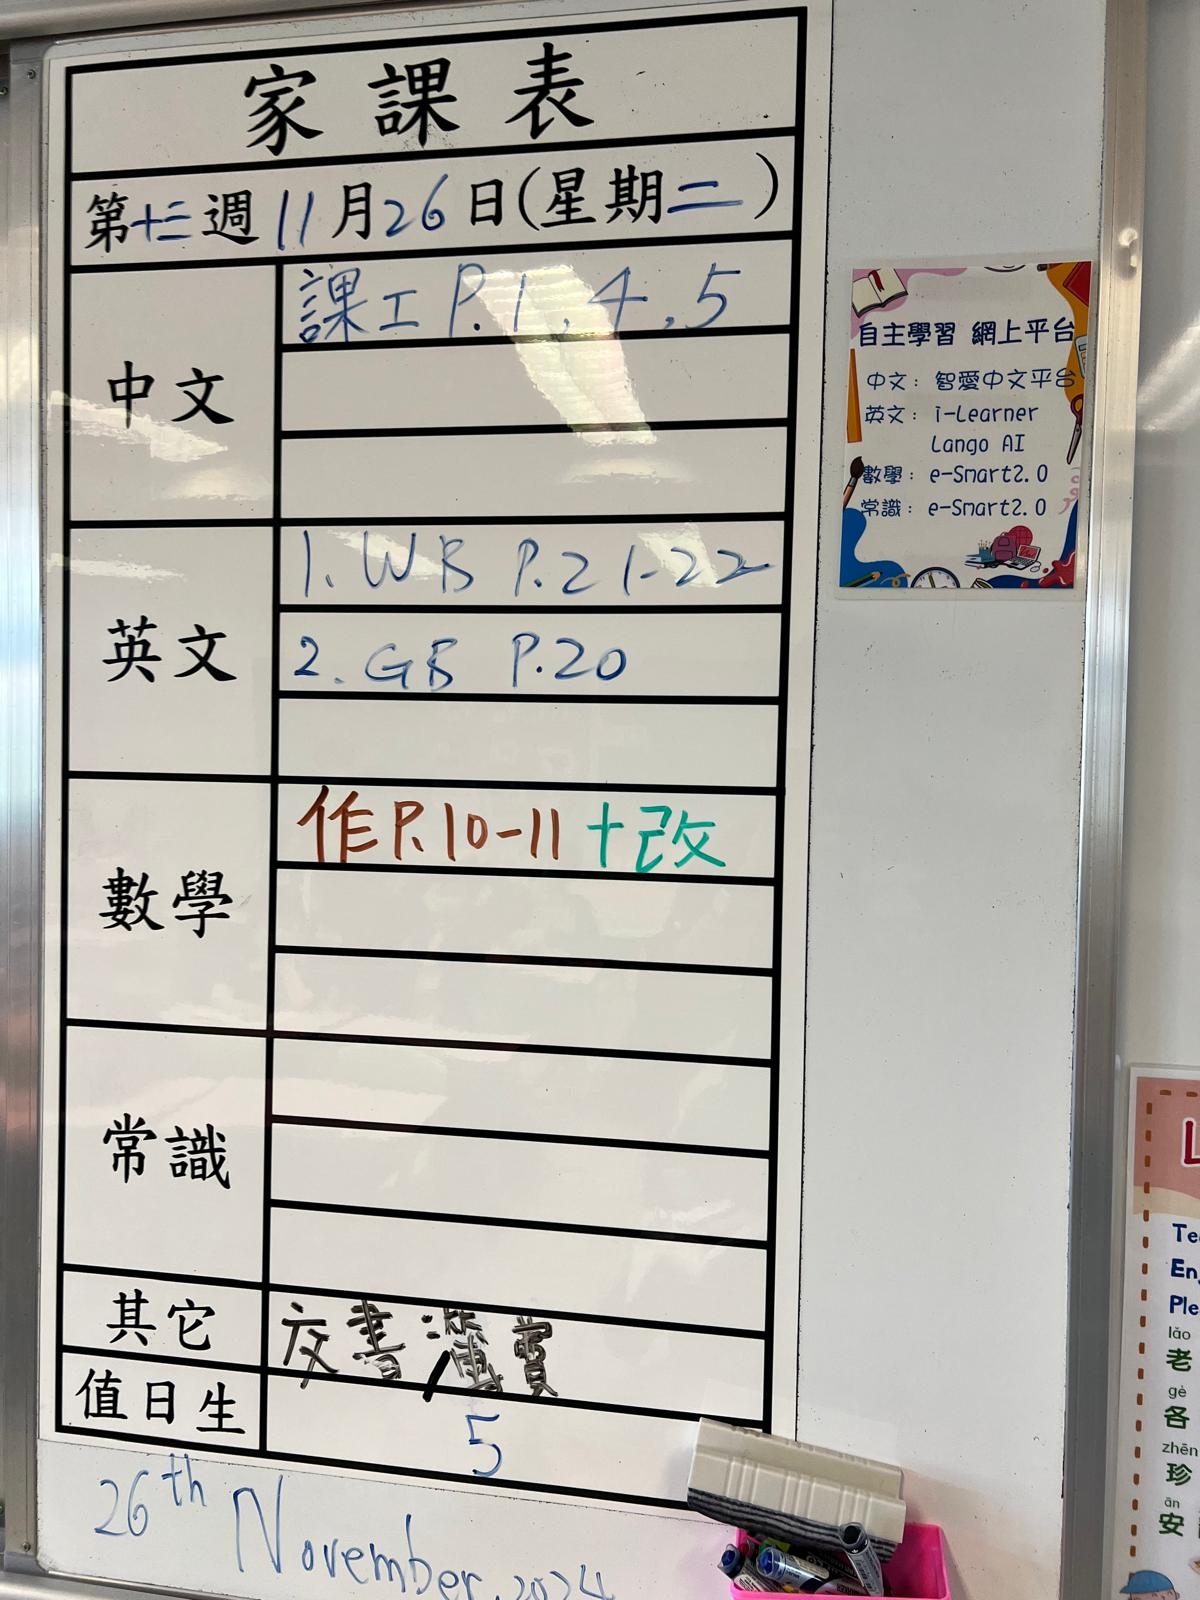 家課表
第十三週11月26日(星期二)
中文
課工 P.1,4,5
英文
1. WB P.21-22
2. GB P.20
數學
作P.10-11+改
常識
其它
書
值日生
5
26th November, 2024
自主學習 網上平台
中文：智愛中文平台
英文：i-Learner
Lango AI
數學：e-Smart2.0
常識：e-Smart2.0
lǎo
老
gè
各
zhēn
珍
ān
安